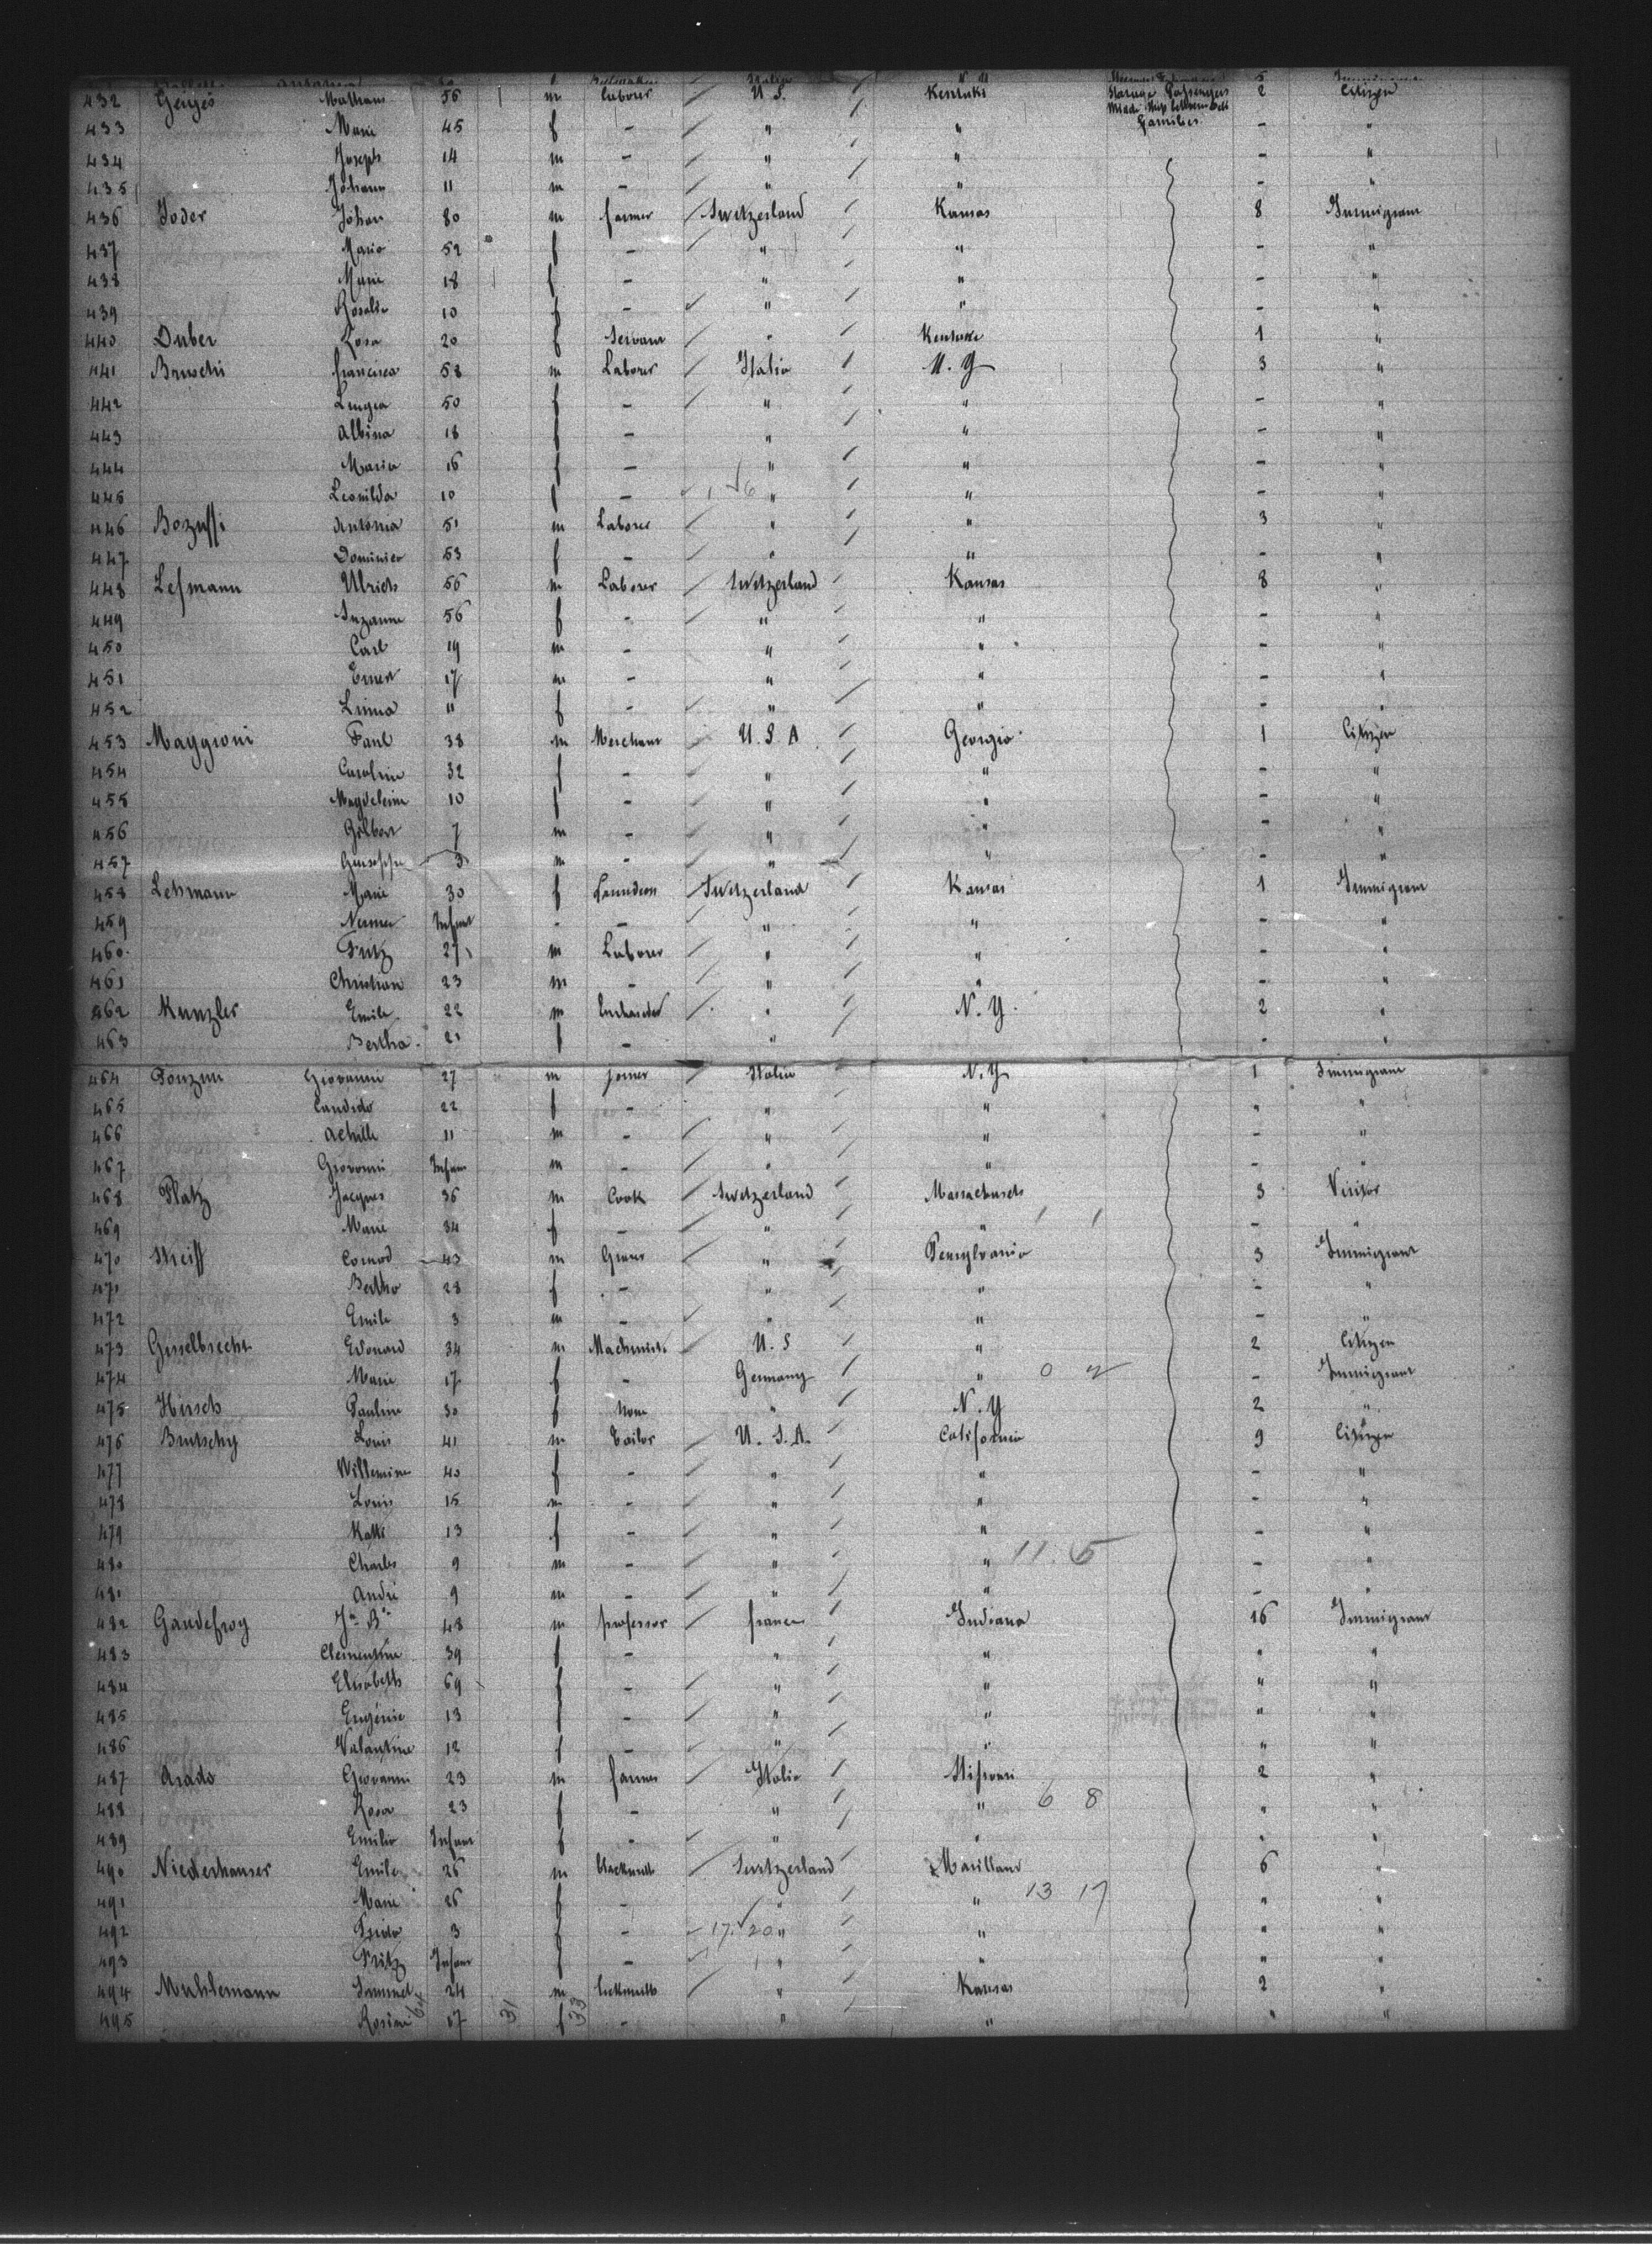 432 Genges Mathaus 56 m laborer U S. Kentuki Storage Passengers 2 Citizen
433 Marie 45 f - " " Families - "
434 Joseph 14 m - " " - "
435 Johann 11 m - " " - "
436 Joder Johan 80 m farmer Switzerland Kansas 8 Immigrant
437 Marie 52 f - " " - "
438 Marie 18 f - " " - "
439 Rosalie 10 f - " " - "
440 Duber Rosa 20 f Servant " Kentuke 1 "
441 Bruschi francisca 58 m Laborer Italia N. Y 3 "
442 50 f - " " - "
443 Albina 18 f - " " - "
444 Maria 16 f - " " - "
445 Leonilda 10 f - " " - "
446 Antonia 51 m Laborer " " 3 "
447 Dominica 53 f - " " - "
448 Lehmann Ulrich 56 m Laborer Switzerland Kansas 8 "
449 Suzanne 56 f - " " - "
450 Carl 19 m - " " - "
451 Ernest 17 m - " " - "
452 Linna 11 f - " " - "
453 Maggioni Paul 38 m Merchant U. S A Georgia 1 Citizen
454 Caroline 32 f - " " - "
455 Magdeleine 10 f - " " - "
456 Gilbert 7 m - " " - "
457 Guiseppe 3 m - " " - "
458 Lehmann Marie 30 f Switzerland Kansas 1 Immigrant
459 Infant - - " " - "
460 Fritz 27 m Laborer " " - "
461 Christian 23 m - " " - "
462 Kunzler Emile 22 m " N. Y. 2 "
463 Bertha 21 f - " - "
464 Ponzini Giovanni 27 m joiner Italia N. Y 1 Immigrant
465 Candido 22 f - " " " "
466 Achille 11 m - " " - "
467 Giovanni Infant m - " " - "
468 Platz Jacques 36 m Cook Switzerland Massachusets 3 Visitor
469 Marie 34 f - " " - "
470 Streiff Conrad 43 m " Pensylvania 3 Immigrant
471 Bertha 28 f - " " - "
472 Emile 3 m - " " - "
473 Giselbrecht Edouard 34 m Machinist U. S " 2 Citizen
474 Marie 17 f - Germany " - Immigrant
475 Hirsch Pauline 30 f None " N. Y 2 "
476 Brutschy Louis 41 m Tailor U. S. A. California 9 Citizen
477 Willemine 40 f - " " - "
478 Louis 15 m - " " - "
479 Katti 13 f - " " - "
480 Charles 9 m - " " 11. 5 - "
481 André 9 m - " " - "
482 Gaudefroy Jn Bte 48 m professor france Indiana 16 Immigrant
483 Clementine 39 f - " " " "
484 Elisabeth 69 f - " " " "
485 Eugénie 13 f - " " " "
486 Valantine 12 f - " " " "
487 Asado Giovanni 23 m farmer Italia 2 "
488 Rosa 23 f - " " 6 8 " "
489 Emilie Infant f - " " " "
490 Niederhauser Emile 26 m blacksmith Switzerland Marilland 6 "
491 Marie 26 f - " " 13 17 " "
492 Frida 3 f - 17. 20 " " " "
493 Fritz Infant f - " " " "
494 Muhlemann Samuel 24 m " Kansas 2 "
495 Rosine 17 f - " " " "
64 31 33